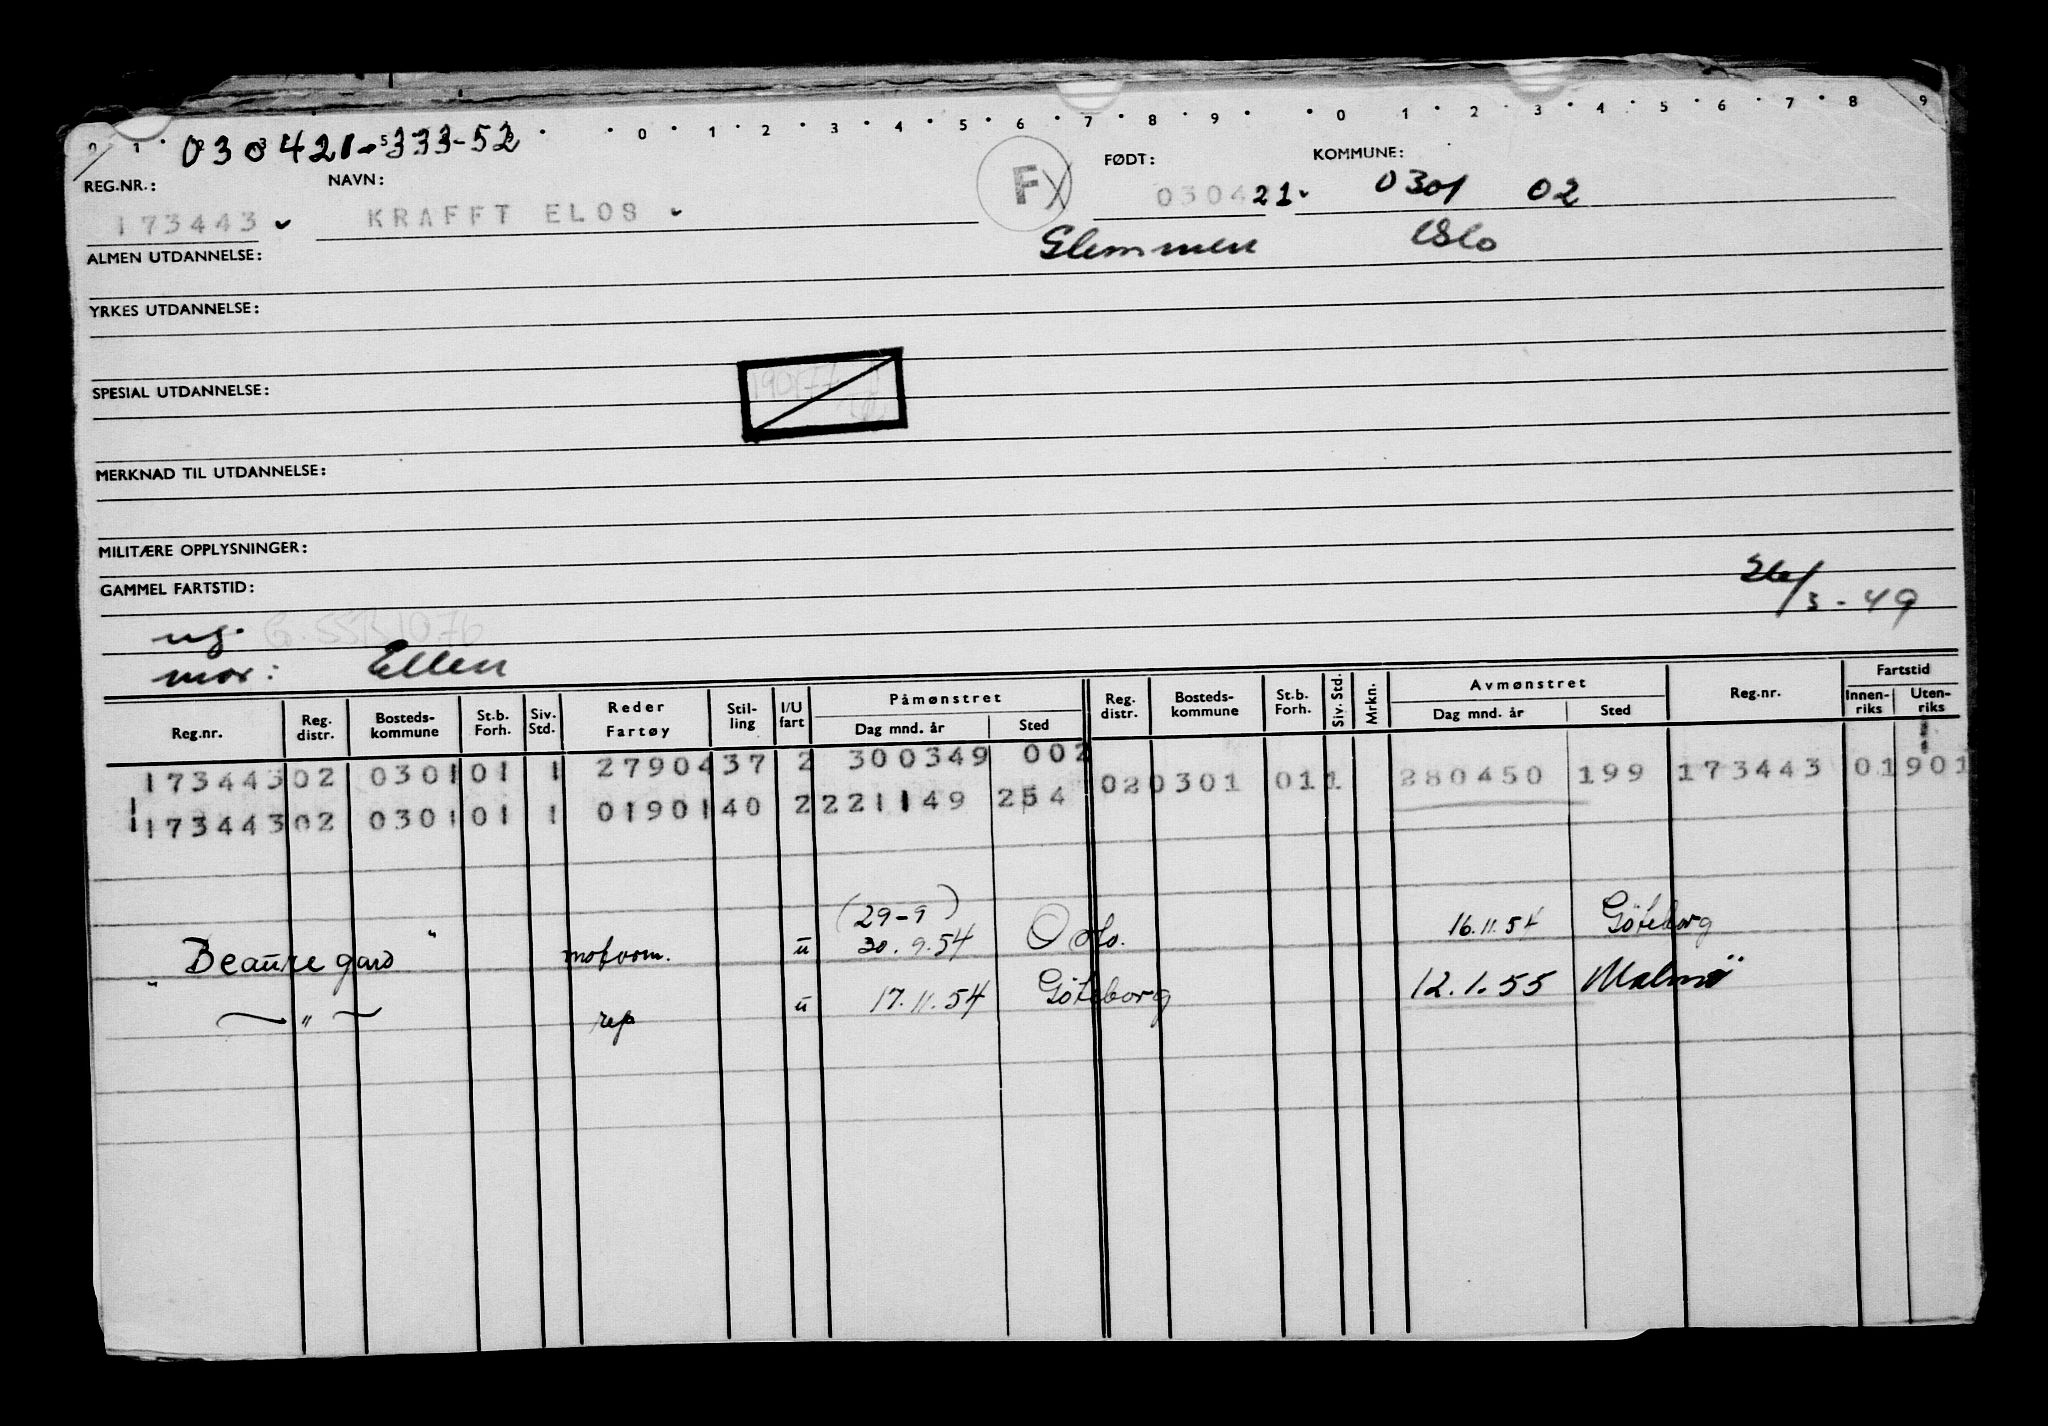 030421-333-52
0 1 2 3 4 5 6 7 8 9 0 1 2 3 4 5 6 7 8 9
REG.NR.: NAVN: FX FØDT: KOMMUNE:
173443 KRAFFT ELOS 030421 0301 02
Glemmen Oslo
ALMEN UTDANNELSE:
YRKES UTDANNELSE:
SPESIAL UTDANNELSE:
MERKNAD TIL UTDANNELSE:
MILITÆRE OPPLYSNINGER:
GAMMEL FARTSTID:
3-49
ug.
mor: Ellen
Reg.nr. Reg. distr. Bosteds-kommune St.b. Forh. Siv. Std. Reder Fartøy Stil-ling I/U fart Påmønstret Dag mnd. år Sted Reg. distr. Bosteds-kommune St.b. Forh. Siv. Std. Mrkn. Avmønstret Dag mnd. år Sted Reg.nr. Fartstid Innen-riks Uten-riks
173443 02 0301 01 1 27904 37 2 300349 002
02 0301 01 1 280450 199 173443 01 901
173443 02 0301 01 1 01901 40 2 221149 254
(29-9)
"Beauregard" motorm. u 30.9.54 Oslo. 16.11.54 Göteborg
— " — rep u 17.11.54 Göteborg 12.1.55 Malmö